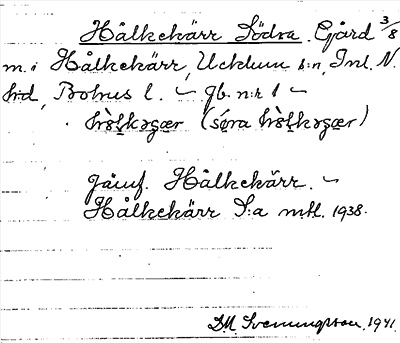 Hålkekärr Södra. Gård 3/8
m. i Hålkekärr, Ucklum s:n, Inl. N.
hd, Bohus l. – Jb. n:r 1 –
hòlkɔʒær (søra hòlkɔʒær)
Jämf. Hålkekärr. –
Hålkekärr S:a mtl. 1938.
DM. Sveningsson. 1941.